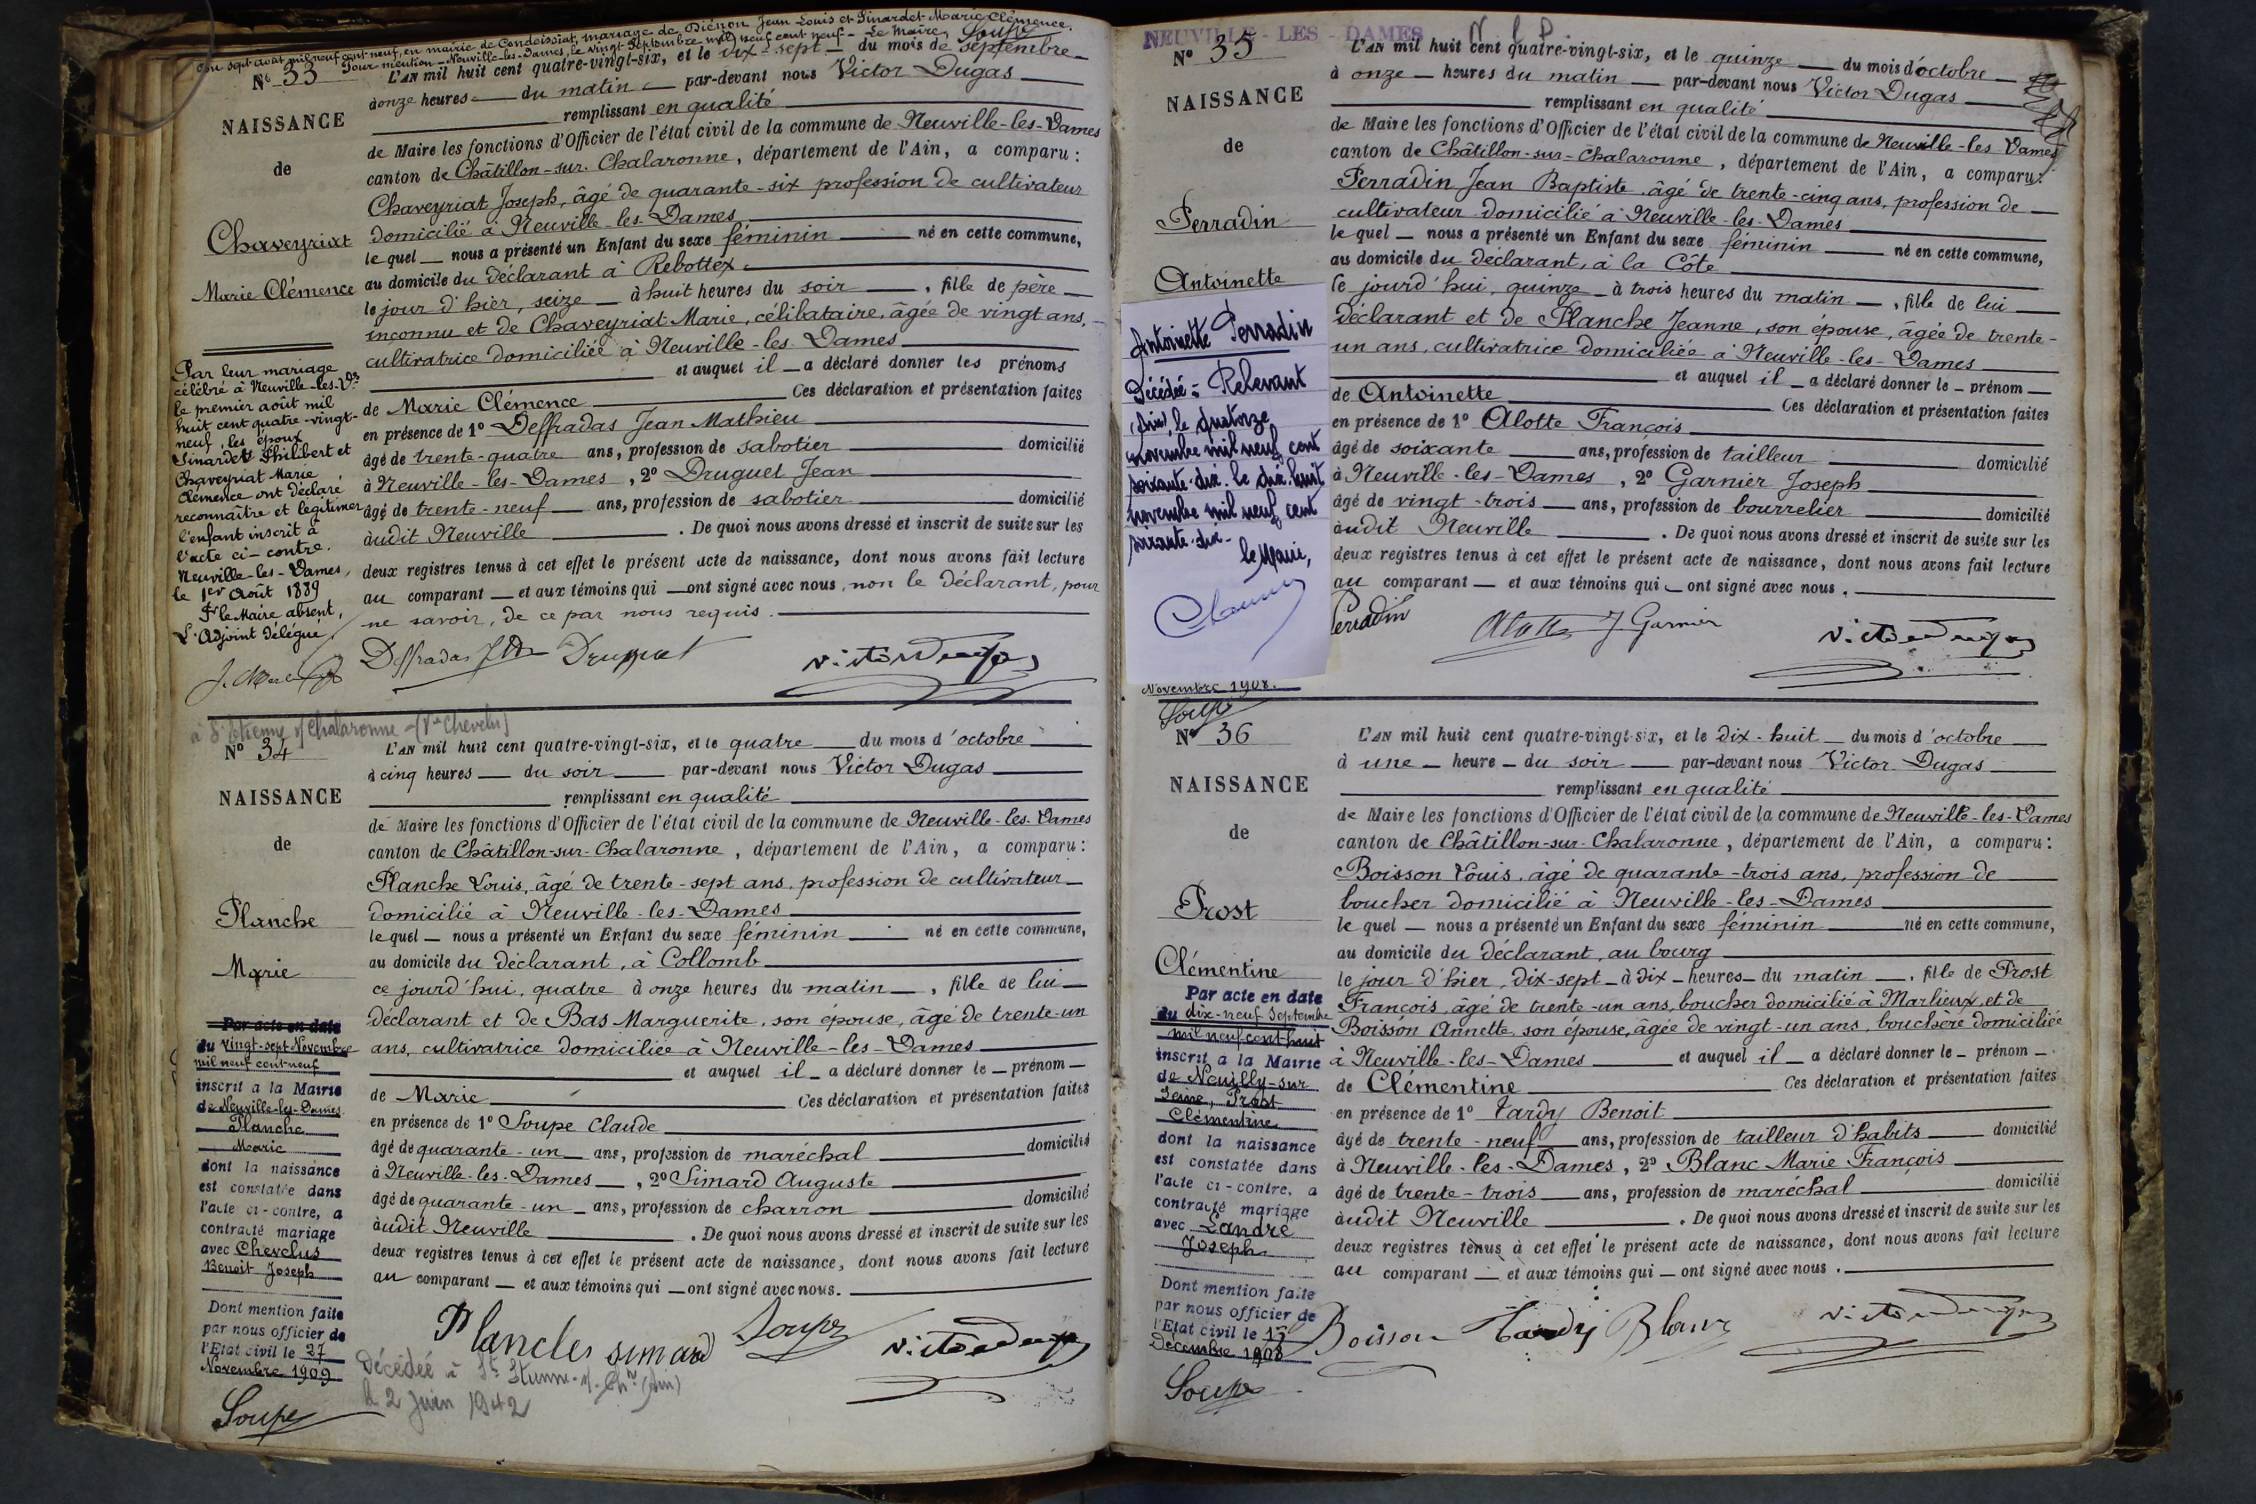 du sept août mil neuf cent neuf, en mairie de Condeissiat, mariage de Piénon Jean Louis et Sinardet Marie Clémence.
Pour mention - Neuville-les-Dames, le vingt Septembre mil neuf cent neuf - Le Maire, Soupe
N° 33
NAISSANCE
de
Chaveyriat
Marie Clémence
Par leur mariage
célébré à Neuville-les-Des
le premier août mil
huit cent quatre-vingt-
neuf, les époux
Sinardet Philibert et
Chaveyriat Marie
Clémence ont déclaré
reconnaître et légitimer
l'enfant inscrit à
l'acte ci-contre.
Neuville-les-Dames,
le 1er Août 1889
Pr le Maire absent,
L'Adjoint délégué,
L'AN mil huit cent quatre-vingt-six, et le dix-sept du mois de septembre
à onze heures du matin par-devant nous Victor Dugas
remplissant en qualité
de Maire les fonctions d'Officier de l'état civil de la commune de Neuville-les-Dames
canton de Châtillon-sur-Chalaronne, département de l'Ain, a comparu :
Chaveyriat Joseph, âgé de quarante-six profession de cultivateur
domicilié à Neuville-les-Dames
le quel nous a présenté un Enfant du sexe féminin né en cette commune,
au domicile du déclarant à Rebottex
le jour d'hier, seize à huit heures du soir, fille de père
inconnu et de Chaveyriat Marie, célibataire, âgée de vingt ans,
cultivatrice domiciliée à Neuville-les-Dames
et auquel il a déclaré donner les prénoms
de Marie Clémence Ces déclaration et présentation faites
en présence de 1° Deffradas Jean Mathieu
âgé de trente-quatre ans, profession de sabotier domicilié
à Neuville-les-Dames, 2° Druguet Jean
âgé de trente-neuf ans, profession de sabotier domicilié
audit Neuville. De quoi nous avons dressé et inscrit de suite sur les
deux registres tenus à cet effet le présent acte de naissance, dont nous avons fait lecture
au comparant et aux témoins qui ont signé avec nous, non le déclarant, pour
ne savoir, de ce par nous requis.
Deffradas Druguet Victor Dugas
à St Etienne s/ Chalaronne (Ve Chevelu)
N° 34
NAISSANCE
de
Planche
Marie
Par acte en date
du vingt-sept Novembre
mil neuf cent neuf
inscrit à la Mairie
de Neuville-les-Dames
Planche
Marie
dont la naissance
est constatée dans
l'acte ci-contre, a
contracté mariage
avec Chevelus
Benoit Joseph
Dont mention faite
par nous officier de
l'Etat civil le 27
Novembre 1909
Soupe
L'AN mil huit cent quatre-vingt-six, et le quatre du mois d'octobre
à cinq heures du soir par-devant nous Victor Dugas
remplissant en qualité
de Maire les fonctions d'Officier de l'état civil de la commune de Neuville-les-Dames
canton de Châtillon-sur-Chalaronne, département de l'Ain, a comparu :
Planche Louis, âgé de trente-sept ans, profession de cultivateur
domicilié à Neuville-les-Dames
le quel nous a présenté un Enfant du sexe féminin né en cette commune,
au domicile du déclarant, à Collomb
ce jourd'hui, quatre à onze heures du matin, fille de lui
déclarant et de Bas Marguerite, son épouse, âgé de trente-un
ans, cultivatrice domiciliée à Neuville-les-Dames
et auquel il a déclaré donner le prénom
de Marie Ces déclaration et présentation faites
en présence de 1° Soupe Claude
âgé de quarante-un ans, profession de maréchal domicilié
à Neuville-les-Dames, 2° Simard Auguste
âgé de quarante-un ans, profession de charron domicilié
audit Neuville. De quoi nous avons dressé et inscrit de suite sur les
deux registres tenus à cet effet le présent acte de naissance, dont nous avons fait lecture
au comparant et aux témoins qui ont signé avec nous.
Planche simard Soupe Victor Dugas
Décédée à St Etienne-s/-Chne (Ain)
le 2 Juin 1942
NEUVILLE-LES-DAMES
N L D
N° 35
NAISSANCE
de
Perradin
Antoinette
Antoinette Perradin
Décédée à Relevant
(Ain), le quatorze
novembre mil neuf cent
soixante-dix. le dix-huit
novembre mil neuf cent
soixante-dix.
le Maire,
Novembre 1908.
Soupe
L'AN mil huit cent quatre-vingt-six, et le quinze du mois d'octobre
à onze heures du matin par-devant nous Victor Dugas
remplissant en qualité
de Maire les fonctions d'Officier de l'état civil de la commune de Neuville-les-Dames
canton de Châtillon-sur-Chalaronne, département de l'Ain, a comparu :
Perradin Jean Baptiste, âgé de trente-cinq ans, profession de
cultivateur domicilié à Neuville-les-Dames
le quel nous a présenté un Enfant du sexe féminin né en cette commune,
au domicile du déclarant, à la Côte
ce jourd'hui, quinze à trois heures du matin, fille de lui
déclarant et de Planche Jeanne, son épouse, âgée de trente-
un ans, cultivatrice domiciliée à Neuville-les-Dames
et auquel il a déclaré donner le prénom
de Antoinette Ces déclaration et présentation faites
en présence de 1° Alotte François
âgé de soixante ans, profession de tailleur domicilié
à Neuville-les-Dames, 2° Garnier Joseph
âgé de vingt-trois ans, profession de bourrelier domicilié
audit Neuville. De quoi nous avons dressé et inscrit de suite sur les
deux registres tenus à cet effet le présent acte de naissance, dont nous avons fait lecture
au comparant et aux témoins qui ont signé avec nous.
Perradin Alotte J. Garnier Victor Dugas
N° 36
NAISSANCE
de
Prost
Clémentine
Par acte en date
du dix-neuf Septembre
mil neuf cent huit
inscrit à la Mairie
de Neuilly-sur
Seine, Prost
Clémentine
dont la naissance
est constatée dans
l'acte ci-contre, a
contracté mariage
avec Landré
Joseph
Dont mention faite
par nous officier de
l'Etat civil le 15
Décembre 1908
Soupe
L'AN mil huit cent quatre-vingt-six, et le dix-huit du mois d'octobre
à une heure du soir par-devant nous Victor Dugas
remplissant en qualité
de Maire les fonctions d'Officier de l'état civil de la commune de Neuville-les-Dames
canton de Châtillon-sur-Chalaronne, département de l'Ain, a comparu :
Boisson Louis, âgé de quarante-trois ans, profession de
boucher domicilié à Neuville-les-Dames
le quel nous a présenté un Enfant du sexe féminin né en cette commune,
au domicile du déclarant, au bourg
le jour d'hier, dix-sept à dix heures du matin, fille de Prost
François, âgé de trente-un ans, boucher domicilié à Marlieux, et de
Boisson Annette, son épouse, âgée de vingt-un ans, bouchère domiciliée
à Neuville-les-Dames et auquel il a déclaré donner le prénom
de Clémentine Ces déclaration et présentation faites
en présence de 1° Tardy Benoit
âgé de trente-neuf ans, profession de tailleur d'habits domicilié
à Neuville-les-Dames, 2° Blanc Marie François
âgé de trente-trois ans, profession de maréchal domicilié
audit Neuville. De quoi nous avons dressé et inscrit de suite sur les
deux registres tenus à cet effet le présent acte de naissance, dont nous avons fait lecture
au comparant et aux témoins qui ont signé avec nous.
Boisson Tardy Blanc Victor Dugas